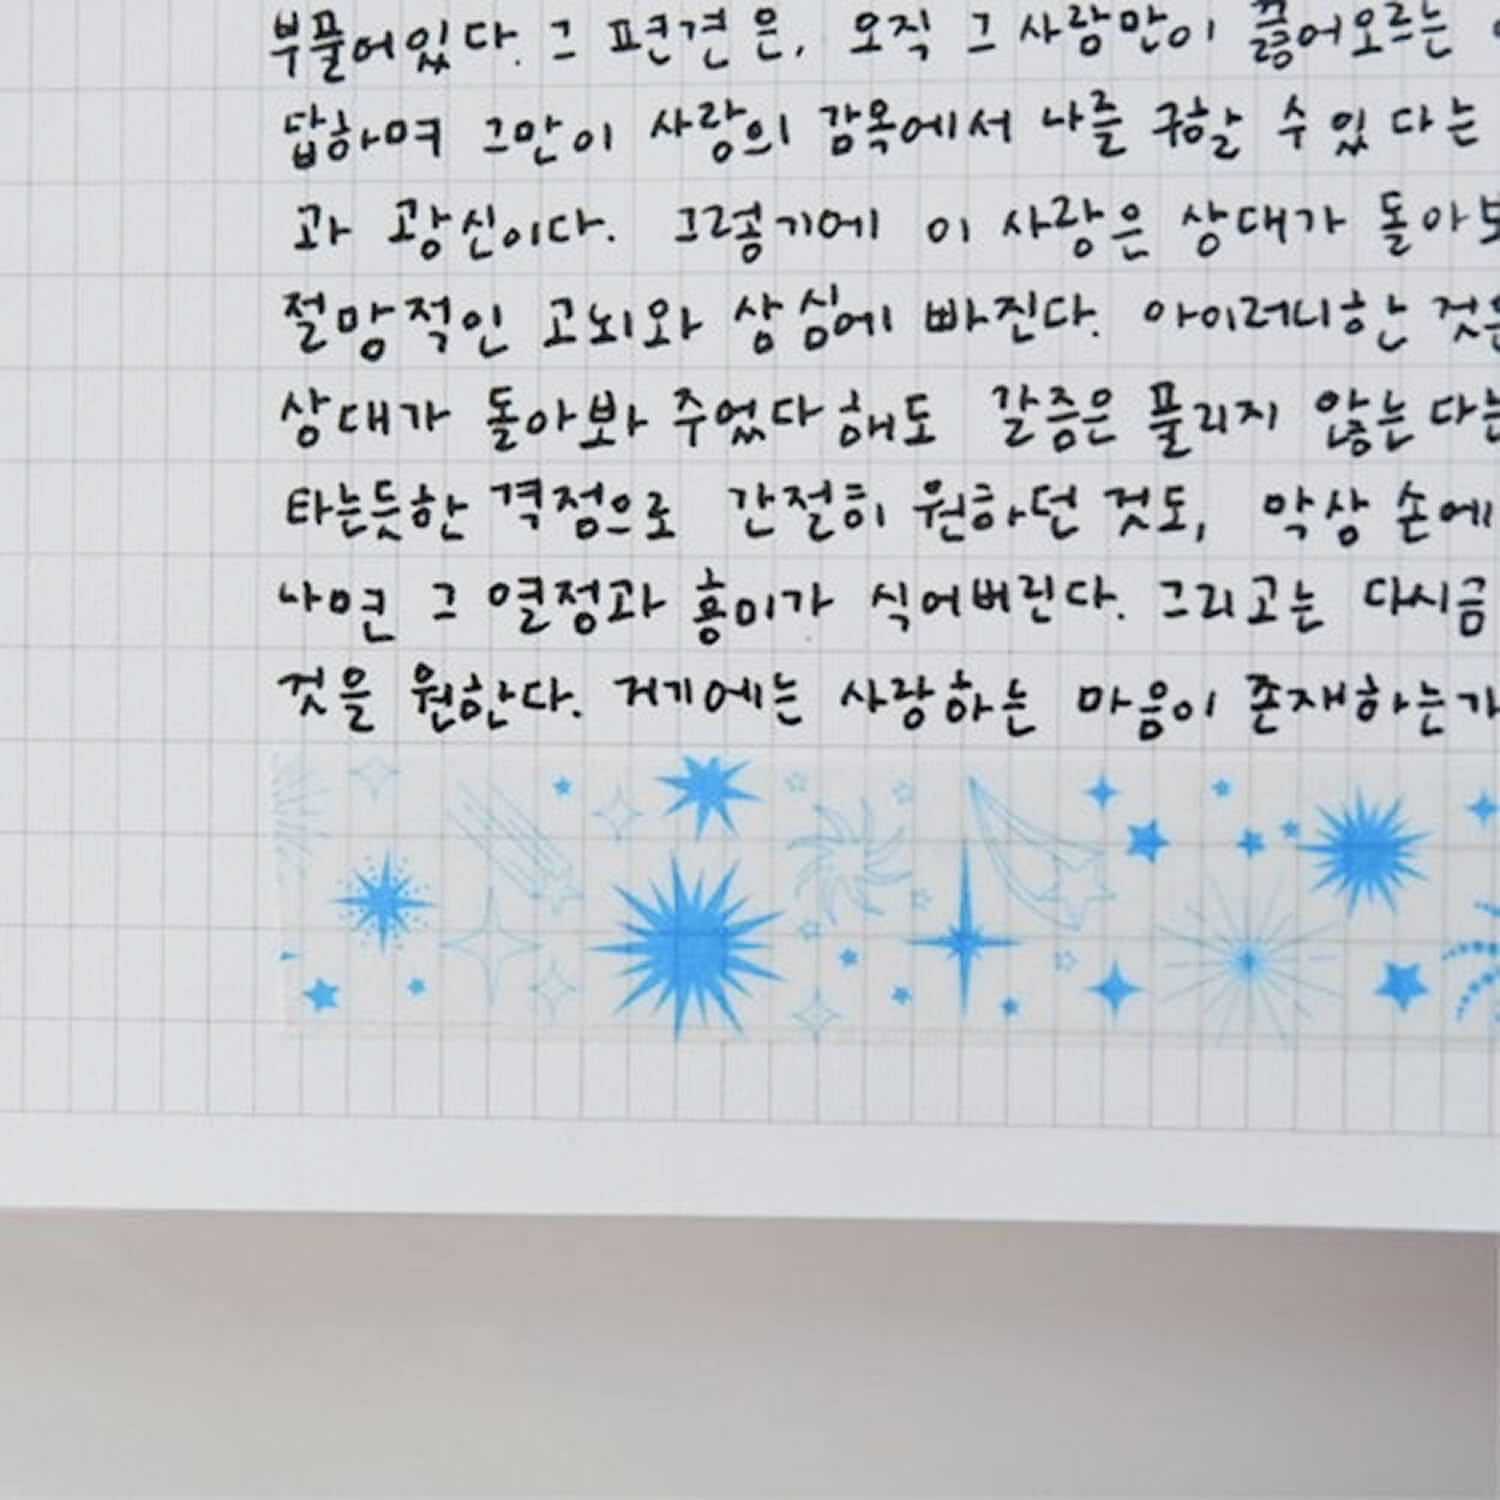 부풀어있다. 그 편견은, 오직 그 사랑만이 끓어오르는
답하며 그만이 사랑의 감옥에서 나를 구할 수 있다는
과 광신이다. 그렇기에 이 사랑은 상대가 돌아보
절망적인 고뇌와 상심에 빠진다. 아이러니한 것은
상대가 돌아봐 주었다 해도 갈증은 풀리지 않는다는
타는듯한 격정으로 간절히 원하던 것도, 막상 손에
나면 그 열정과 흥미가 식어버린다. 그리고는 다시금
것을 원한다. 거기에는 사랑하는 마음이 존재하는가